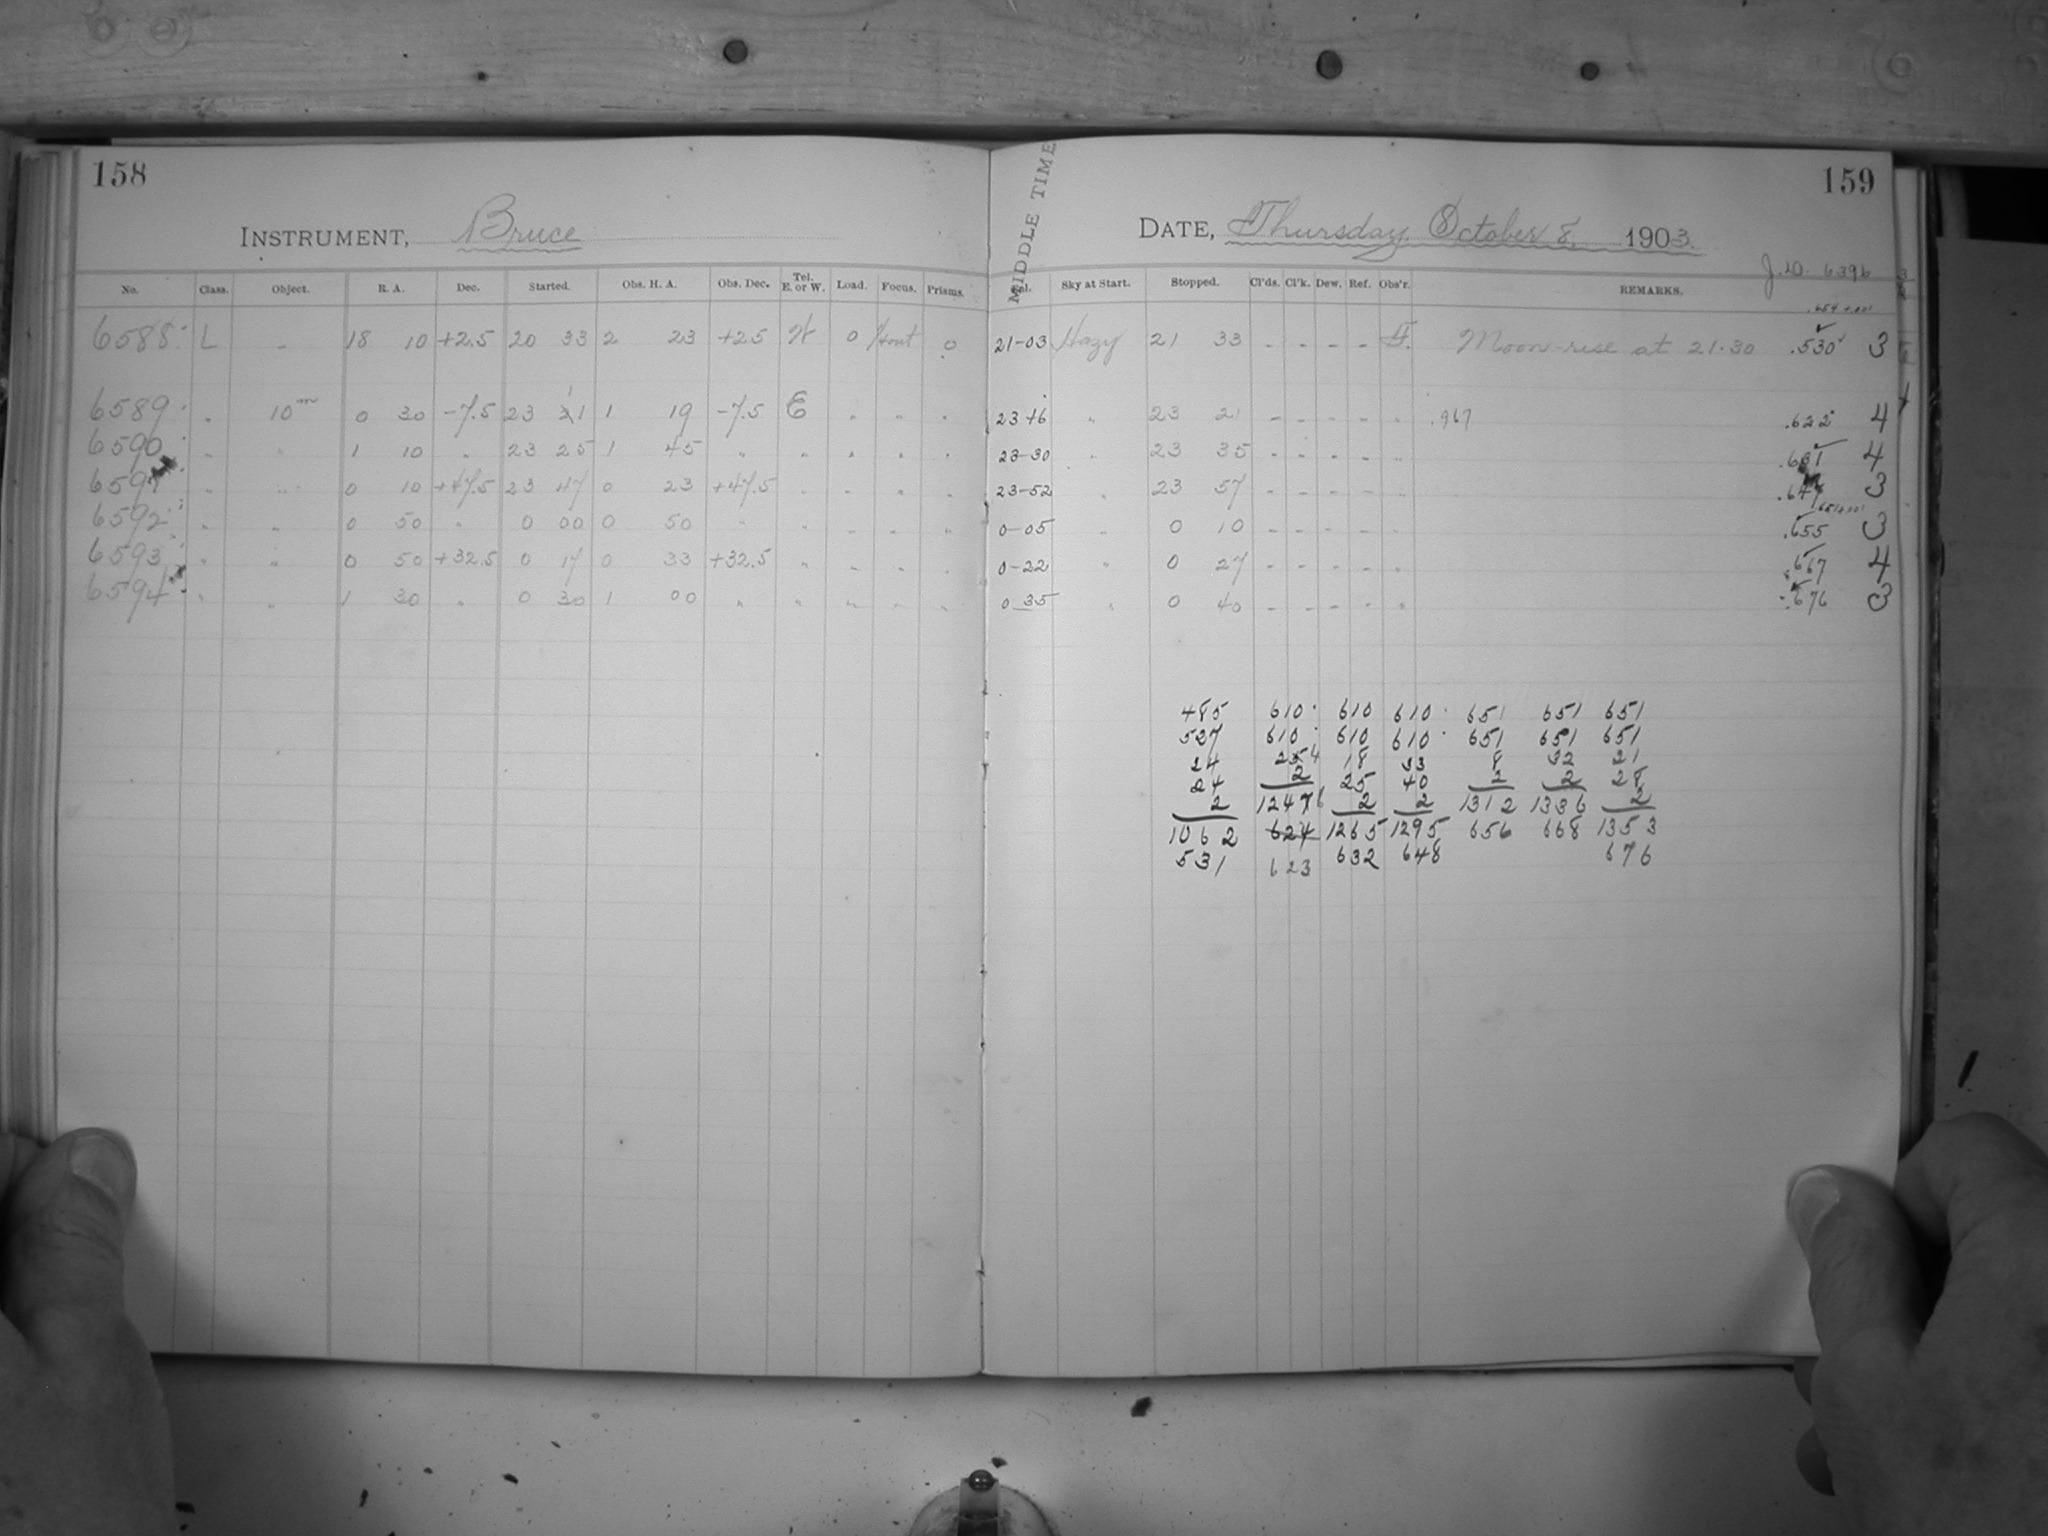 158
INSTRUMENT, Bruce
No. Class. Object. R. A. Dec. Started. Obs. H. A. Obs. Dec. Tel. E. or W. Load. Focus. Prisms.
6588 L " 18 10 +2.5 20 33 2 23 +2.5 W 0 0
6589 " 10m 0 30 -7.5 23 11 1 19 -7.5 E " " "
6590 " " 1 10 " 23 25 1 45 " " " " "
6591 " " 0 10 +47.5 23 47 0 23 +47.5 " " " "
6592 " " 0 50 " 0 00 0 50 " " " " "
6593 " " 0 50 +32.5 0 17 0 33 +32.5 " " " "
6594 " " 1 30 " 0 30 1 00 " " " " "
159
MIDDLE TIME
DATE, Thursday October 8, 1903.
J.D. 6396
Sky at Start. Stopped. Cl'ds. Cl'k. Dew. Ref. Obs'r. REMARKS.
21-03 Hazy 21 33 - - - - Moon-rise at 21.30 .530 3
23 16 " 23 21 - - - - " .967 .622 4
23-30 " 23 35 - - - - " .631 4
23-52 " 23 57 - - - - " 3
0-05 " 0 10 - - - - " .655 3
0-22 " 0 27 - - - - " .667 4
0 35 " 0 40 - - - - " .676 3
485 610 610 610 651 651 651
527 610 610 610 651 651 651
24 18 33 8 32 21
24 2 25 40 2 2 28
2 2 2 1312 1336 2
1062 624 1265 1295 656 668 1353
531 623 632 648 676